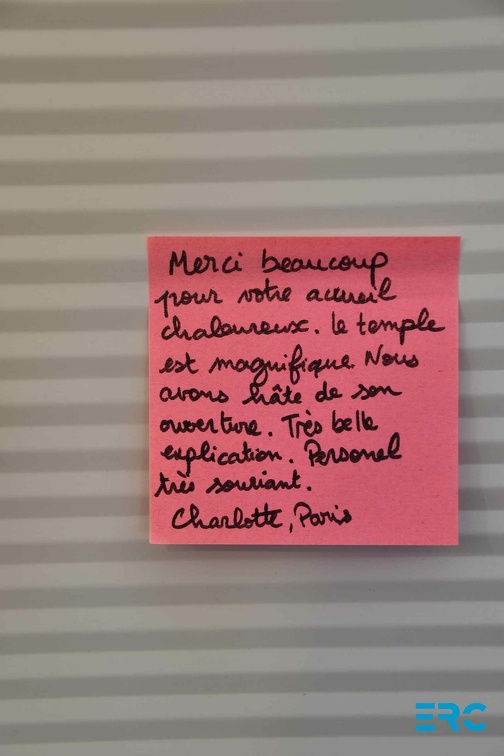 Merci beaucoup
pour votre accueil
chaleureux. le temple
est magnifique. Nous
avons hâte de son
ouverture. Très belle
explication. Personel
très souriant.
Charlotte, Paris
ERC